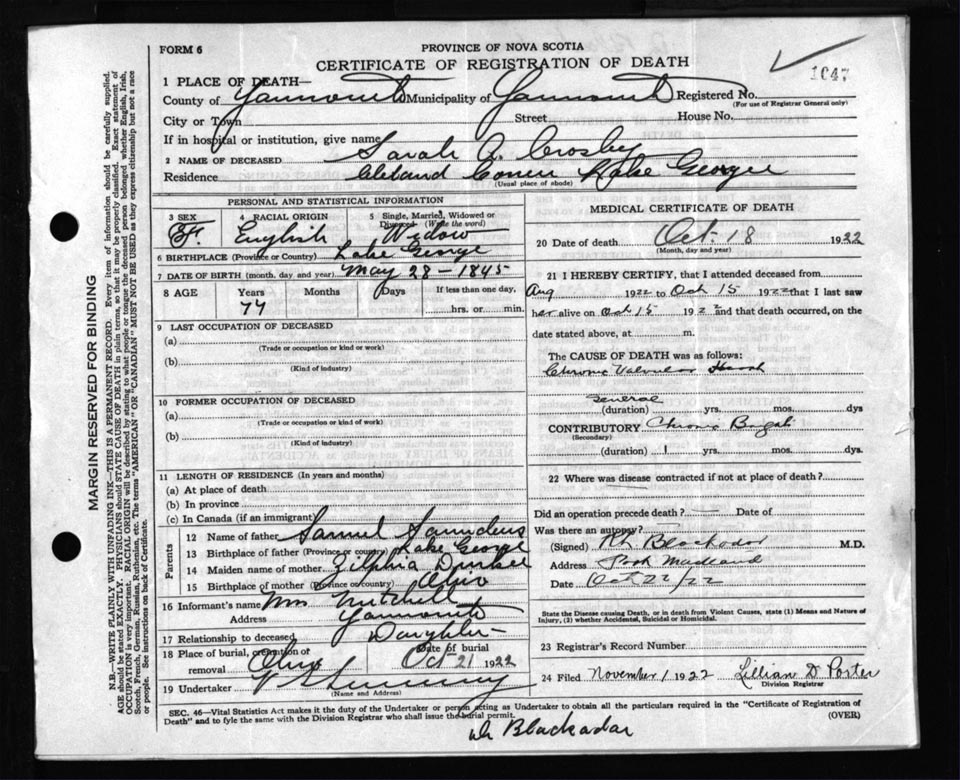 FORM 6
PROVINCE OF NOVA SCOTIA
CERTIFICATE OF REGISTRATION OF DEATH
1047
1 PLACE OF DEATH—
County of Yarmouth Municipality of Yarmouth Registered No.
(For use of Registrar General only)
City or Town Street House No.
If in hospital or institution, give name
2 NAME OF DECEASED Sarah A. Crosby
Residence Cleland Corner Lake George
(Usual place of abode)
PERSONAL AND STATISTICAL INFORMATION
3 SEX F.
4 RACIAL ORIGIN English
5 Single, Married, Widowed or Divorced (Write the word) Widow
6 BIRTHPLACE (Province or Country) Lake George
7 DATE OF BIRTH (month, day and year) May 28 - 1845
8 AGE Years Months Days If less than one day,
77 hrs. or min.
9 LAST OCCUPATION OF DECEASED
(a)
(Trade or occupation or kind or work)
(b)
(Kind of industry)
10 FORMER OCCUPATION OF DECEASED
(a)
(Trade or occupation or kind of work)
(b)
(Kind of industry)
11 LENGTH OF RESIDENCE (In years and months)
(a) At place of death
(b) In province
(c) In Canada (if an immigrant)
Parents
12 Name of father Samuel Saunders
13 Birthplace of father (Province or country) Lake George
14 Maiden name of mother Zilphia
15 Birthplace of mother (Province or country) Ohio
16 Informant's name Mrs Mitchell
Address Yarmouth
17 Relationship to deceased Daughter
18 Place of burial, cremation or removal Ohio
Date of burial Oct 21 1922
19 Undertaker
(Name and Address)
MEDICAL CERTIFICATE OF DEATH
20 Date of death Oct. 18 1922
(Month, day and year)
21 I HEREBY CERTIFY, that I attended deceased from
Aug 1922 to Oct 15 1922 that I last saw
her alive on Oct 15 1922 and that death occurred, on the
date stated above, at m.
The CAUSE OF DEATH was as follows:
Chronic Valvular Heart
several
(duration) yrs. mos. dys
CONTRIBUTORY Chronic
(Secondary)
(duration) 1 yrs. mos. dys.
22 Where was disease contracted if not at place of death?
Did an operation precede death? — Date of
Was there an autopsy? —
(Signed) Blackadar M.D.
Address Port Maitland
Date Oct 22/22
State the Disease causing Death, or in death from Violent Causes, state (1) Means and Nature of
Injury, (2) whether Accidental, Suicidal or Homicidal.
23 Registrar's Record Number
24 Filed November 1 1922 Lillian D Porter
Division Registrar
SEC. 46—Vital Statistics Act makes it the duty of the Undertaker or person acting as Undertaker to obtain all the particulars required in the "Certificate of Registration of
Death" and to fyle the same with the Division Registrar who shall issue the burial permit. (OVER)
Dr Blackadar
MARGIN RESERVED FOR BINDING
N.B.—WRITE PLAINLY, WITH UNFADING INK—THIS IS A PERMANENT RECORD. Every item of information should be carefully supplied.
AGE should be stated EXACTLY. PHYSICIANS should STATE CAUSE OF DEATH in plain terms, so that it may be properly classified. Exact statement of
OCCUPATION is very important. RACIAL ORIGIN will be described by stating to what people or tongue the deceased person belonged whether English, Irish,
Scotch, French, German, Russian, Ruthenian, etc. The terms "AMERICAN" OR "CANADIAN" MUST NOT BE USED as they express citizenship but not a race
or people. See instructions on back of Certificate.